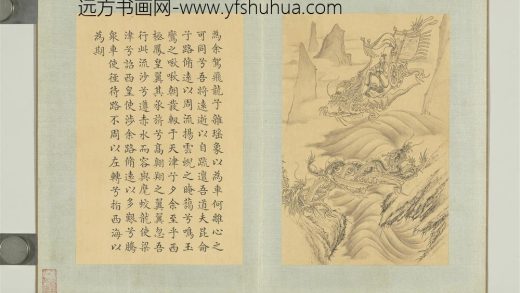 远方书画网-www.yfshuhua.com
為余駕飛龍兮雜瑤象以為車何離心之
可同兮吾將遠逝以自疏邅吾道夫昆侖
兮路脩遠以周流揚雲霓之晻藹兮鳴玉
鸞之啾啾朝發軔于天津兮夕余至乎西
極鳳皇翼其承旂兮高翱翔之翼翼忽吾
行此流沙兮遵赤水而容與麾蛟龍使梁
津兮詔西皇使涉余路脩遠以多艱兮騰
衆車使徑待路不周以左轉兮指西海以
為期